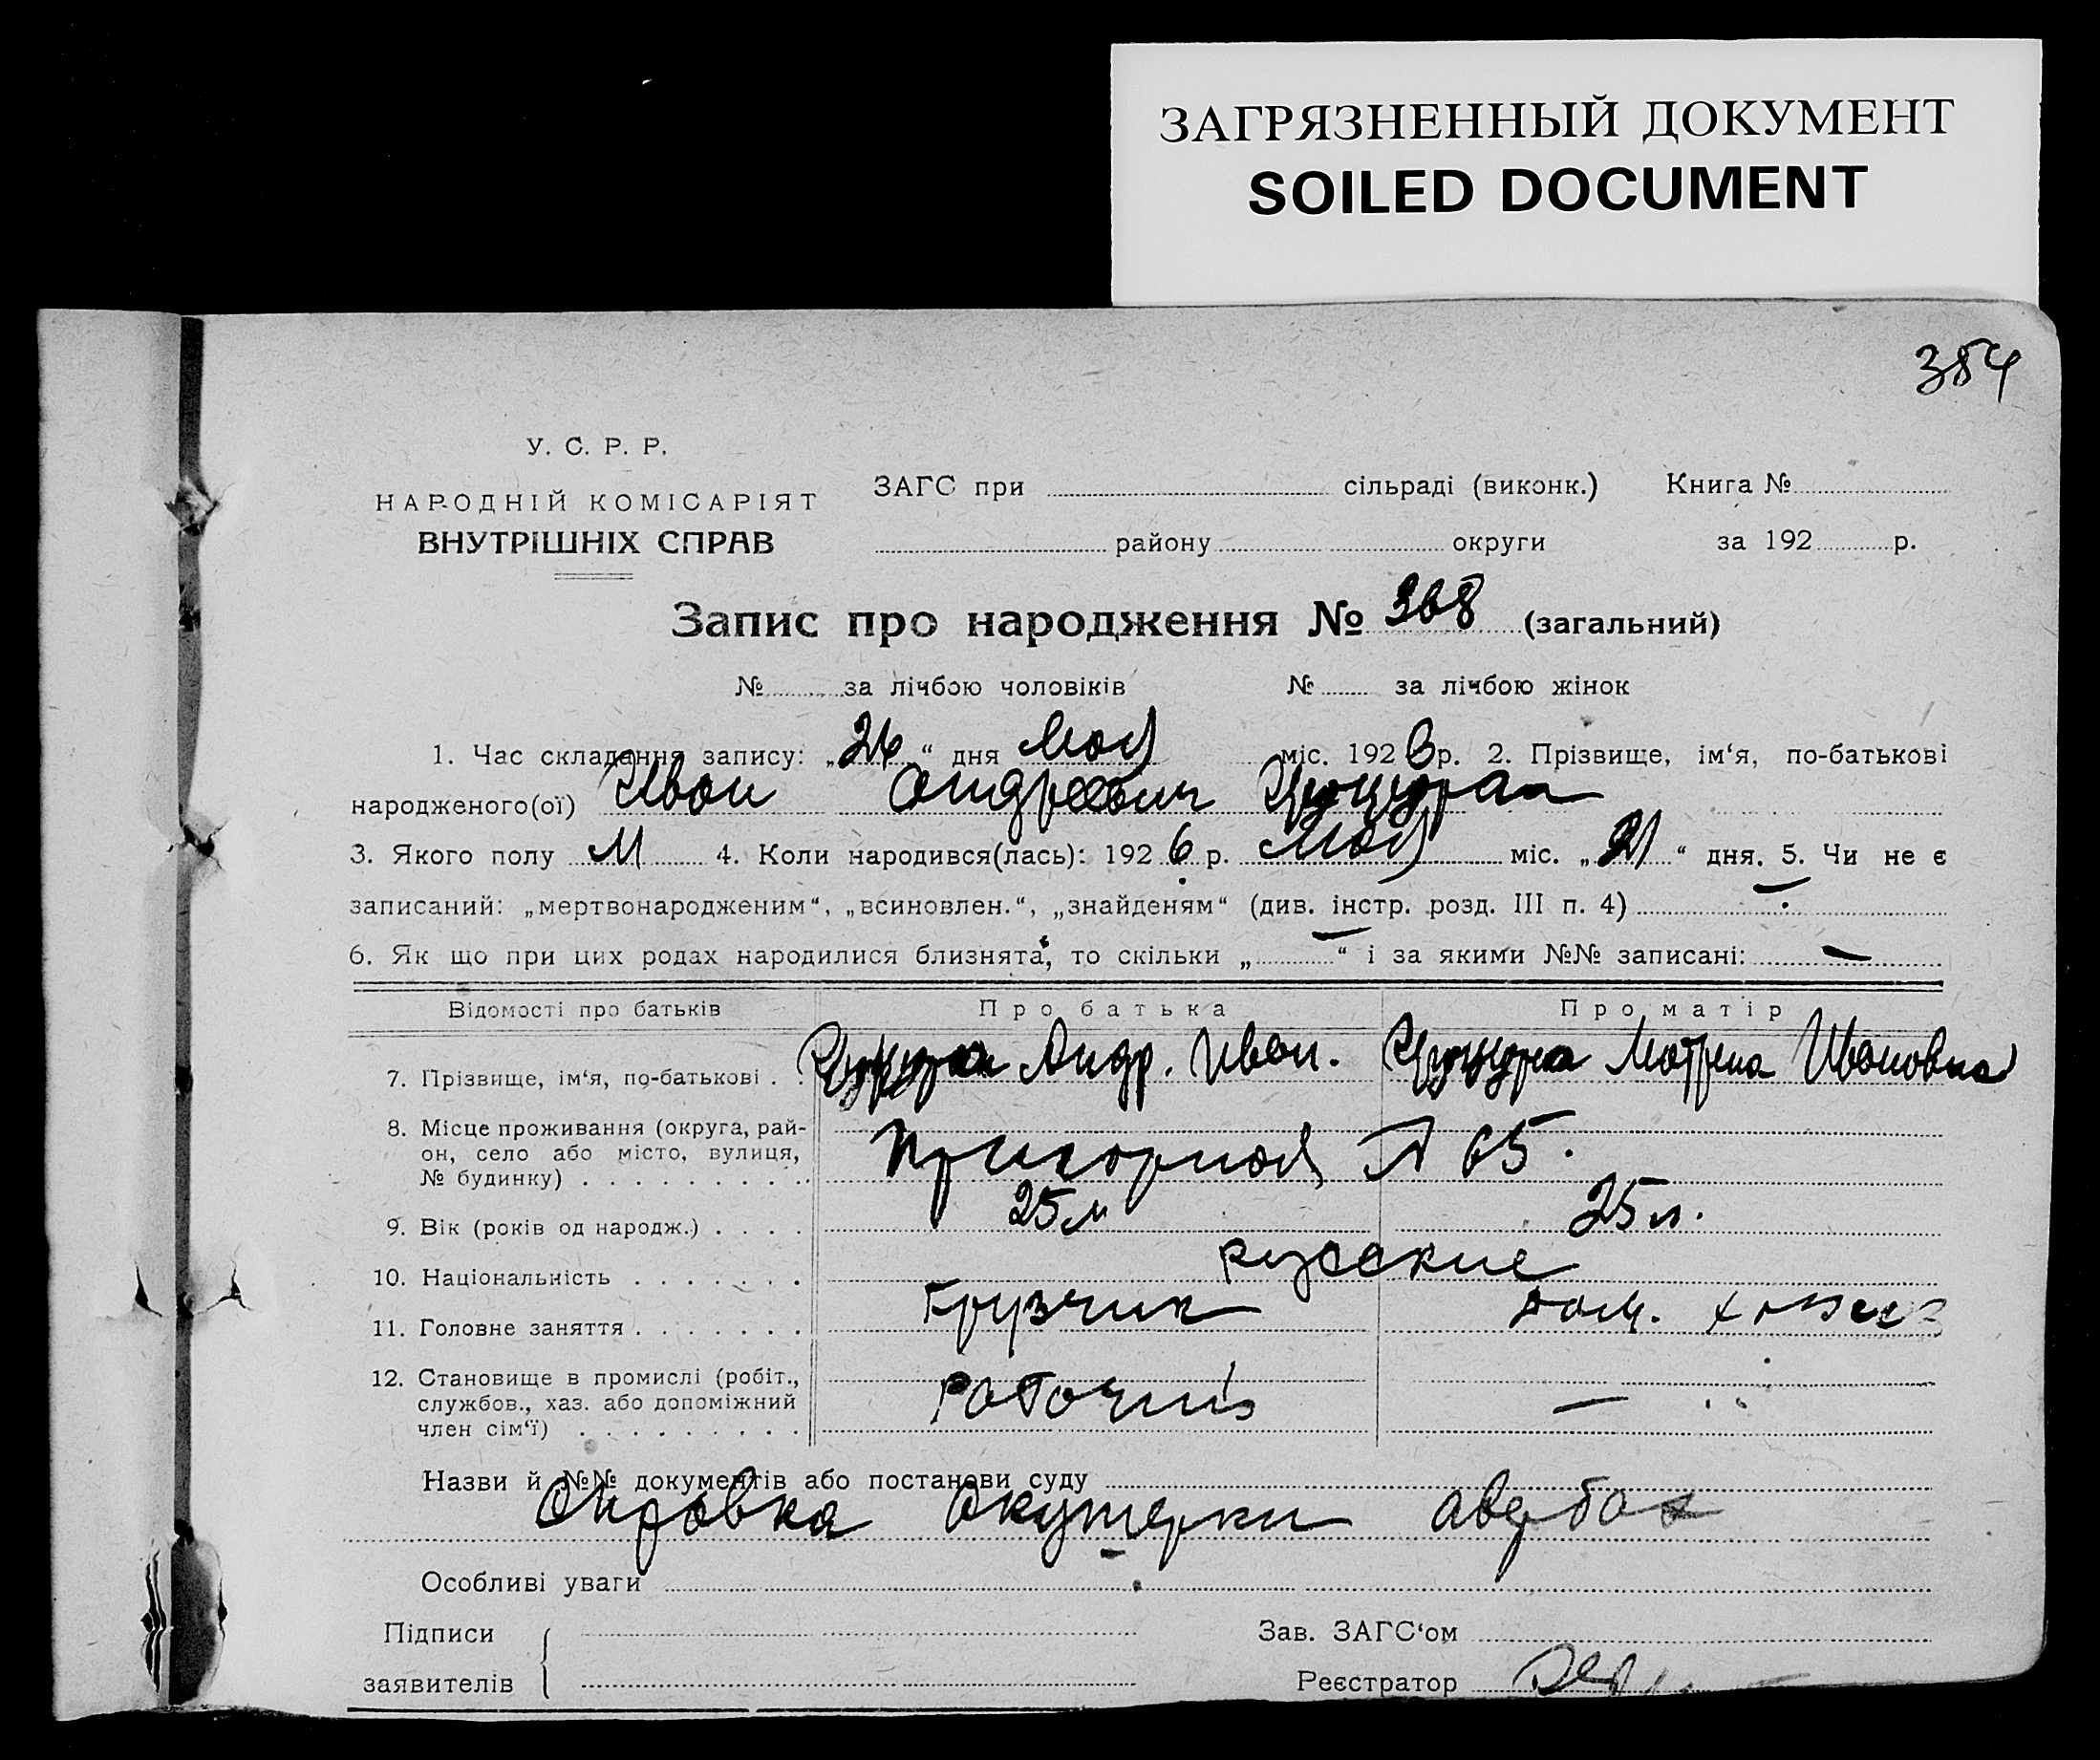 ЗАГРЯЗНЕННЫЙ ДОКУМЕНТ
SOILED DOCUMENT
384
У. С. Р. Р.
НАРОДНІЙ КОМІСАРІЯТ
ВНУТРІШНІХ СПРАВ
ЗАГС при сільраді (виконк.) Книга №
району округи за 192 р.
Запис про народження № 368 (загальний)
№ за лічбою чоловіків № за лічбою жінок
1. Час складання запису: „26“ дня Мая міс. 1926 р. 2. Прізвище, ім‘я, по-батькові
народженого(ої) Иван Андреевич
3. Якого полу М 4. Коли народився(лась): 1926 р. Мая міс. „21“ дня. 5. Чи не є
записаний: „мертвонародженим“, „всиновлен.“, „знайденям“ (див. інстр. розд. III п. 4) —
6. Як що при цих родах народилися близнята, то скільки „—“ і за якими №№ записані: —
Відомості про батьків Про батька Про матір
7. Прізвище, ім‘я, по-батькові . . Андр. Иван. Матрена Ивановна
8. Місце проживання (округа, рай-
он, село або місто, вулиця,
№ будинку) . . . . . . . . . Пригорная 65.
9. Вік (років од народж.) . . . . 25 л 25 л.
10. Національність . . . . . . . русские
11. Головне заняття . . . . . . . Грузчик дом. хозяк
12. Становище в промислі (робіт.,
службов., хаз. або допоміжний
член сім‘ї) . . . . . . . . . Рабочий —
Назви й №№ документів або постанови суду
Справка Акушерки Авербах
Особливі уваги
Підписи
заявителів
Зав. ЗАГС‘ом
Реєстратор